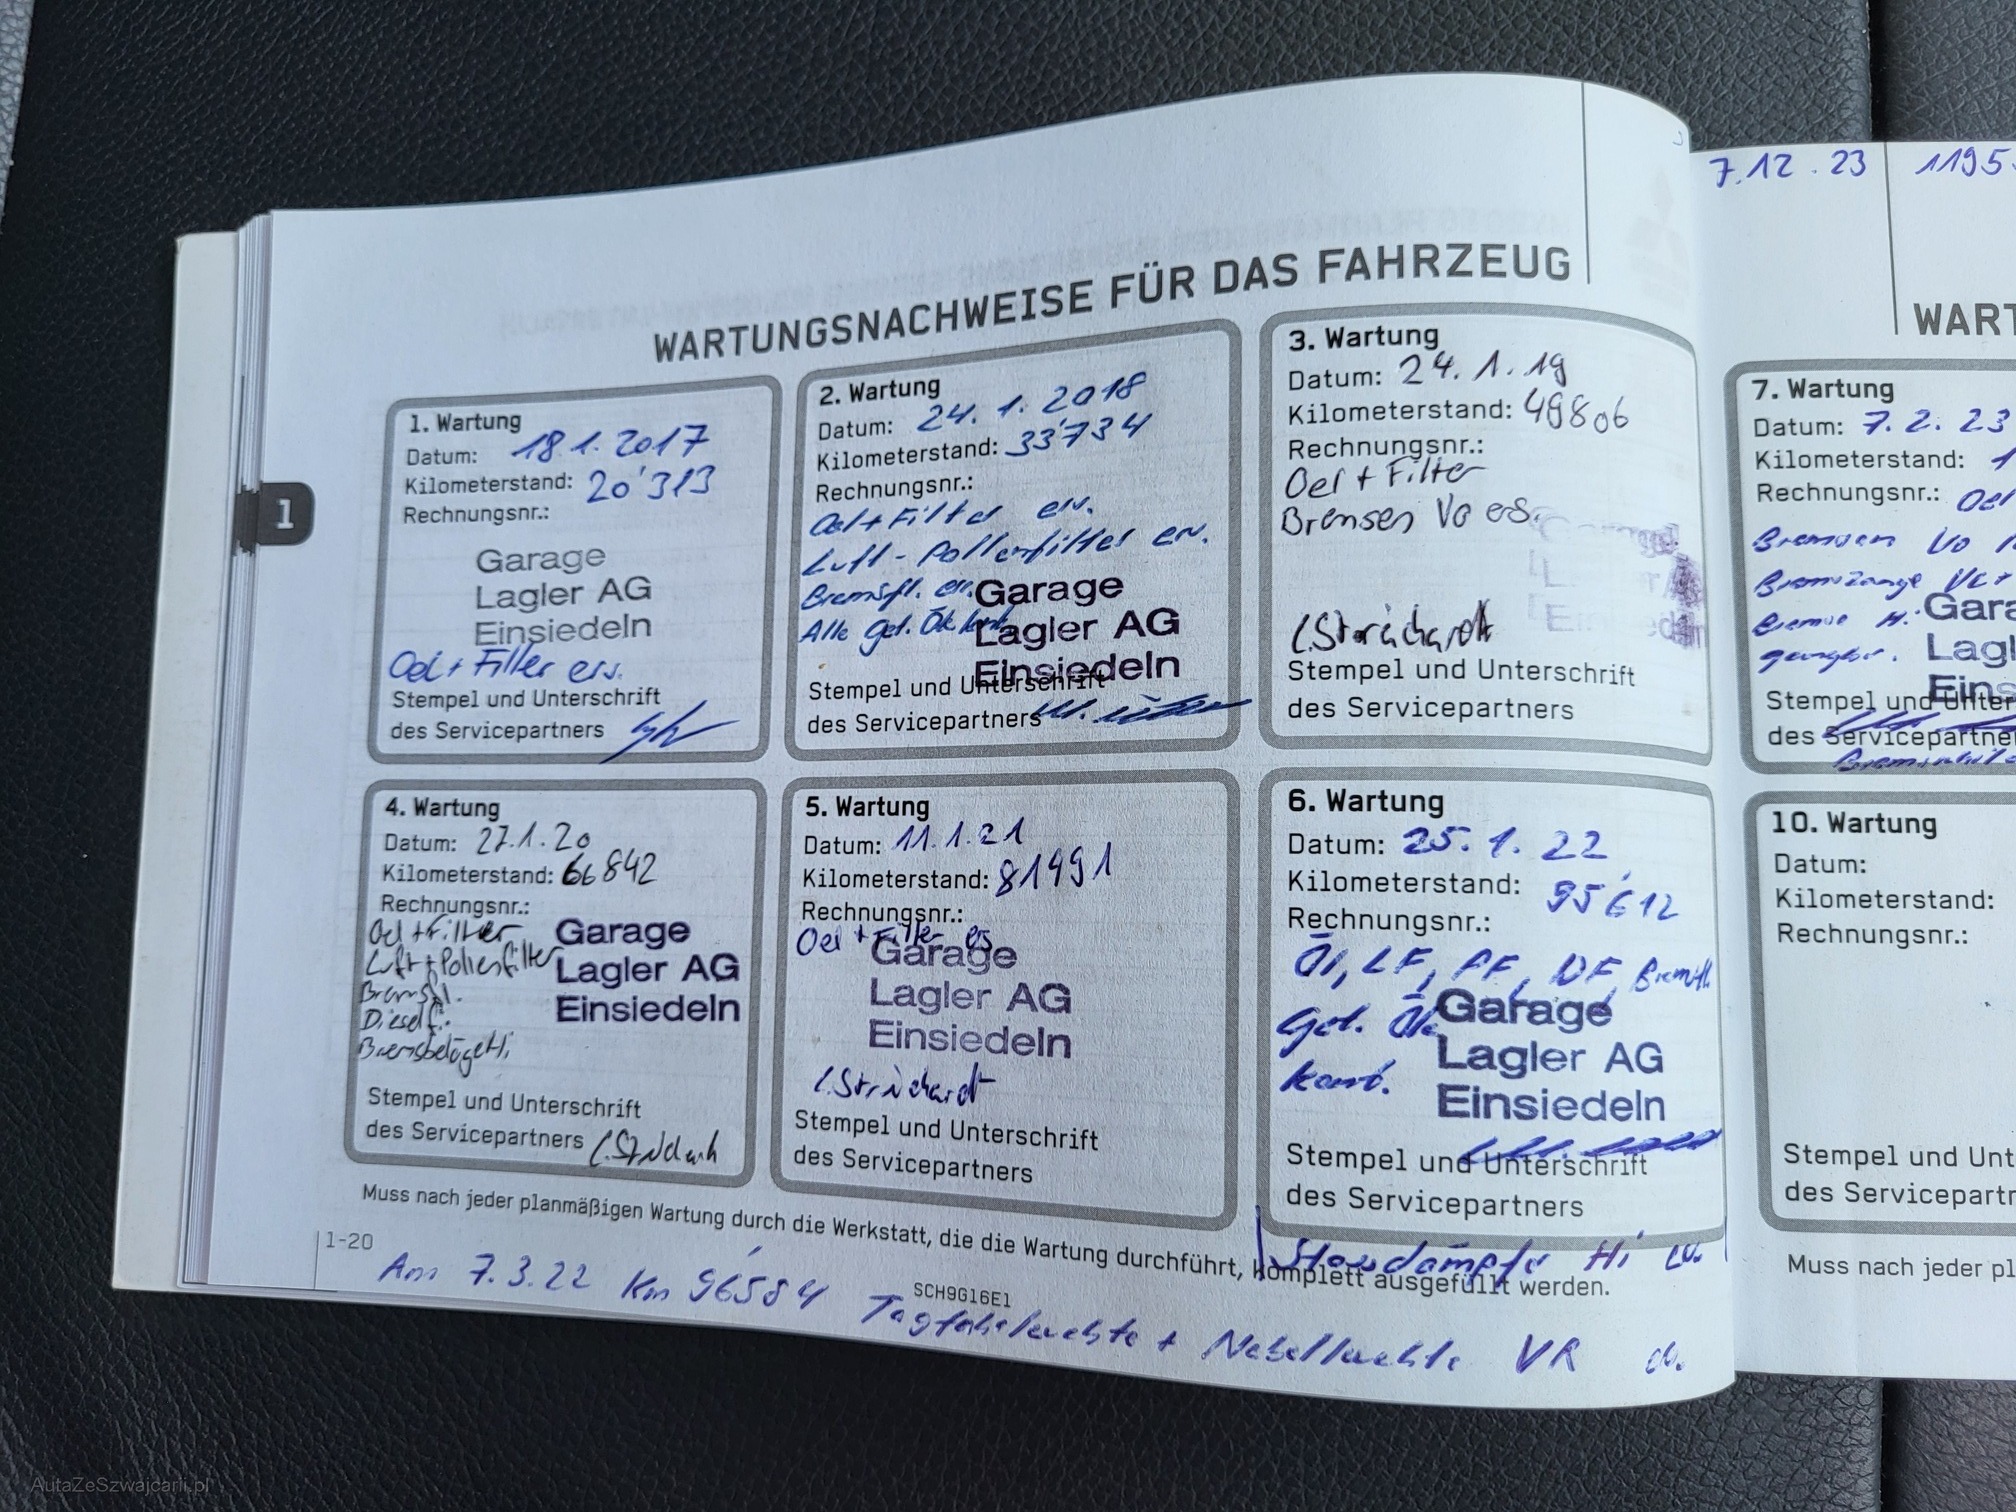 7.12.23 1195
WARTUNGSNACHWEISE FÜR DAS FAHRZEUG
1
1. Wartung
Datum: 18.1.2017
Kilometerstand: 20'313
Rechnungsnr.:
Garage
Lagler AG
Einsiedeln
Oel + Filter ers.
Stempel und Unterschrift
des Servicepartners
2. Wartung
Datum: 24.1.2018
Kilometerstand: 33'734
Rechnungsnr.:
Oel + Filter ers.
Luft - Pollenfilter ers.
Bremsfl. ers.
Alle gel.
Garage
Lagler AG
Einsiedeln
Stempel und Unterschrift
des Servicepartners
3. Wartung
Datum: 24.1.19
Kilometerstand: 49806
Rechnungsnr.:
Oel + Filter
Bremsen Vo ers.
Stempel und Unterschrift
des Servicepartners
4. Wartung
Datum: 27.1.20
Kilometerstand: 66842
Rechnungsnr.:
Oel + Filter
Luft + Pollenfilter
Bremsfl.
Dieself.
Bremsbeläge Hi.
Garage
Lagler AG
Einsiedeln
Stempel und Unterschrift
des Servicepartners
5. Wartung
Datum: 11.1.21
Kilometerstand: 81491
Rechnungsnr.:
Oel + Filter ers
Garage
Lagler AG
Einsiedeln
Stempel und Unterschrift
des Servicepartners
6. Wartung
Datum: 25.1.22
Kilometerstand: 95'612
Rechnungsnr.:
Öl, LF, PF, DF, Bremsfl.
Gel.
Garage
Lagler AG
Einsiedeln
Stempel und Unterschrift
des Servicepartners
Stossdämpfer Hi
Muss nach jeder planmäßigen Wartung durch die Werkstatt, die die Wartung durchführt, komplett ausgefüllt werden.
1-20
SCH9G16E1
Am 7.3.22 Km 96'584 Tagfahrleuchte + Nebelleuchte VR
WART
7. Wartung
Datum: 7.2.23
Kilometerstand: 1
Rechnungsnr.: Oel
Bremsen Vo
Bremszange
Bremse H.
Gara
Lagl
Eins
Stempel und Unter
des Servicepartne
10. Wartung
Datum:
Kilometerstand:
Rechnungsnr.:
Stempel und Unt
des Servicepartr
Muss nach jeder pl
AutaZeSzwajcarii.pl